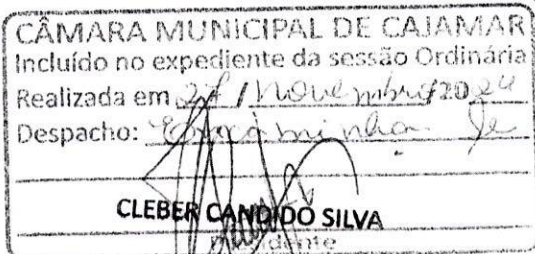 CÂMARA MUNICIPAL DE CAJAMAR
Incluído no expediente da sessão Ordinária
Realizada em 27 / Novembro / 20 24
Despacho: Encaminha-se
CLEBER CANDIDO SILVA
Presidente